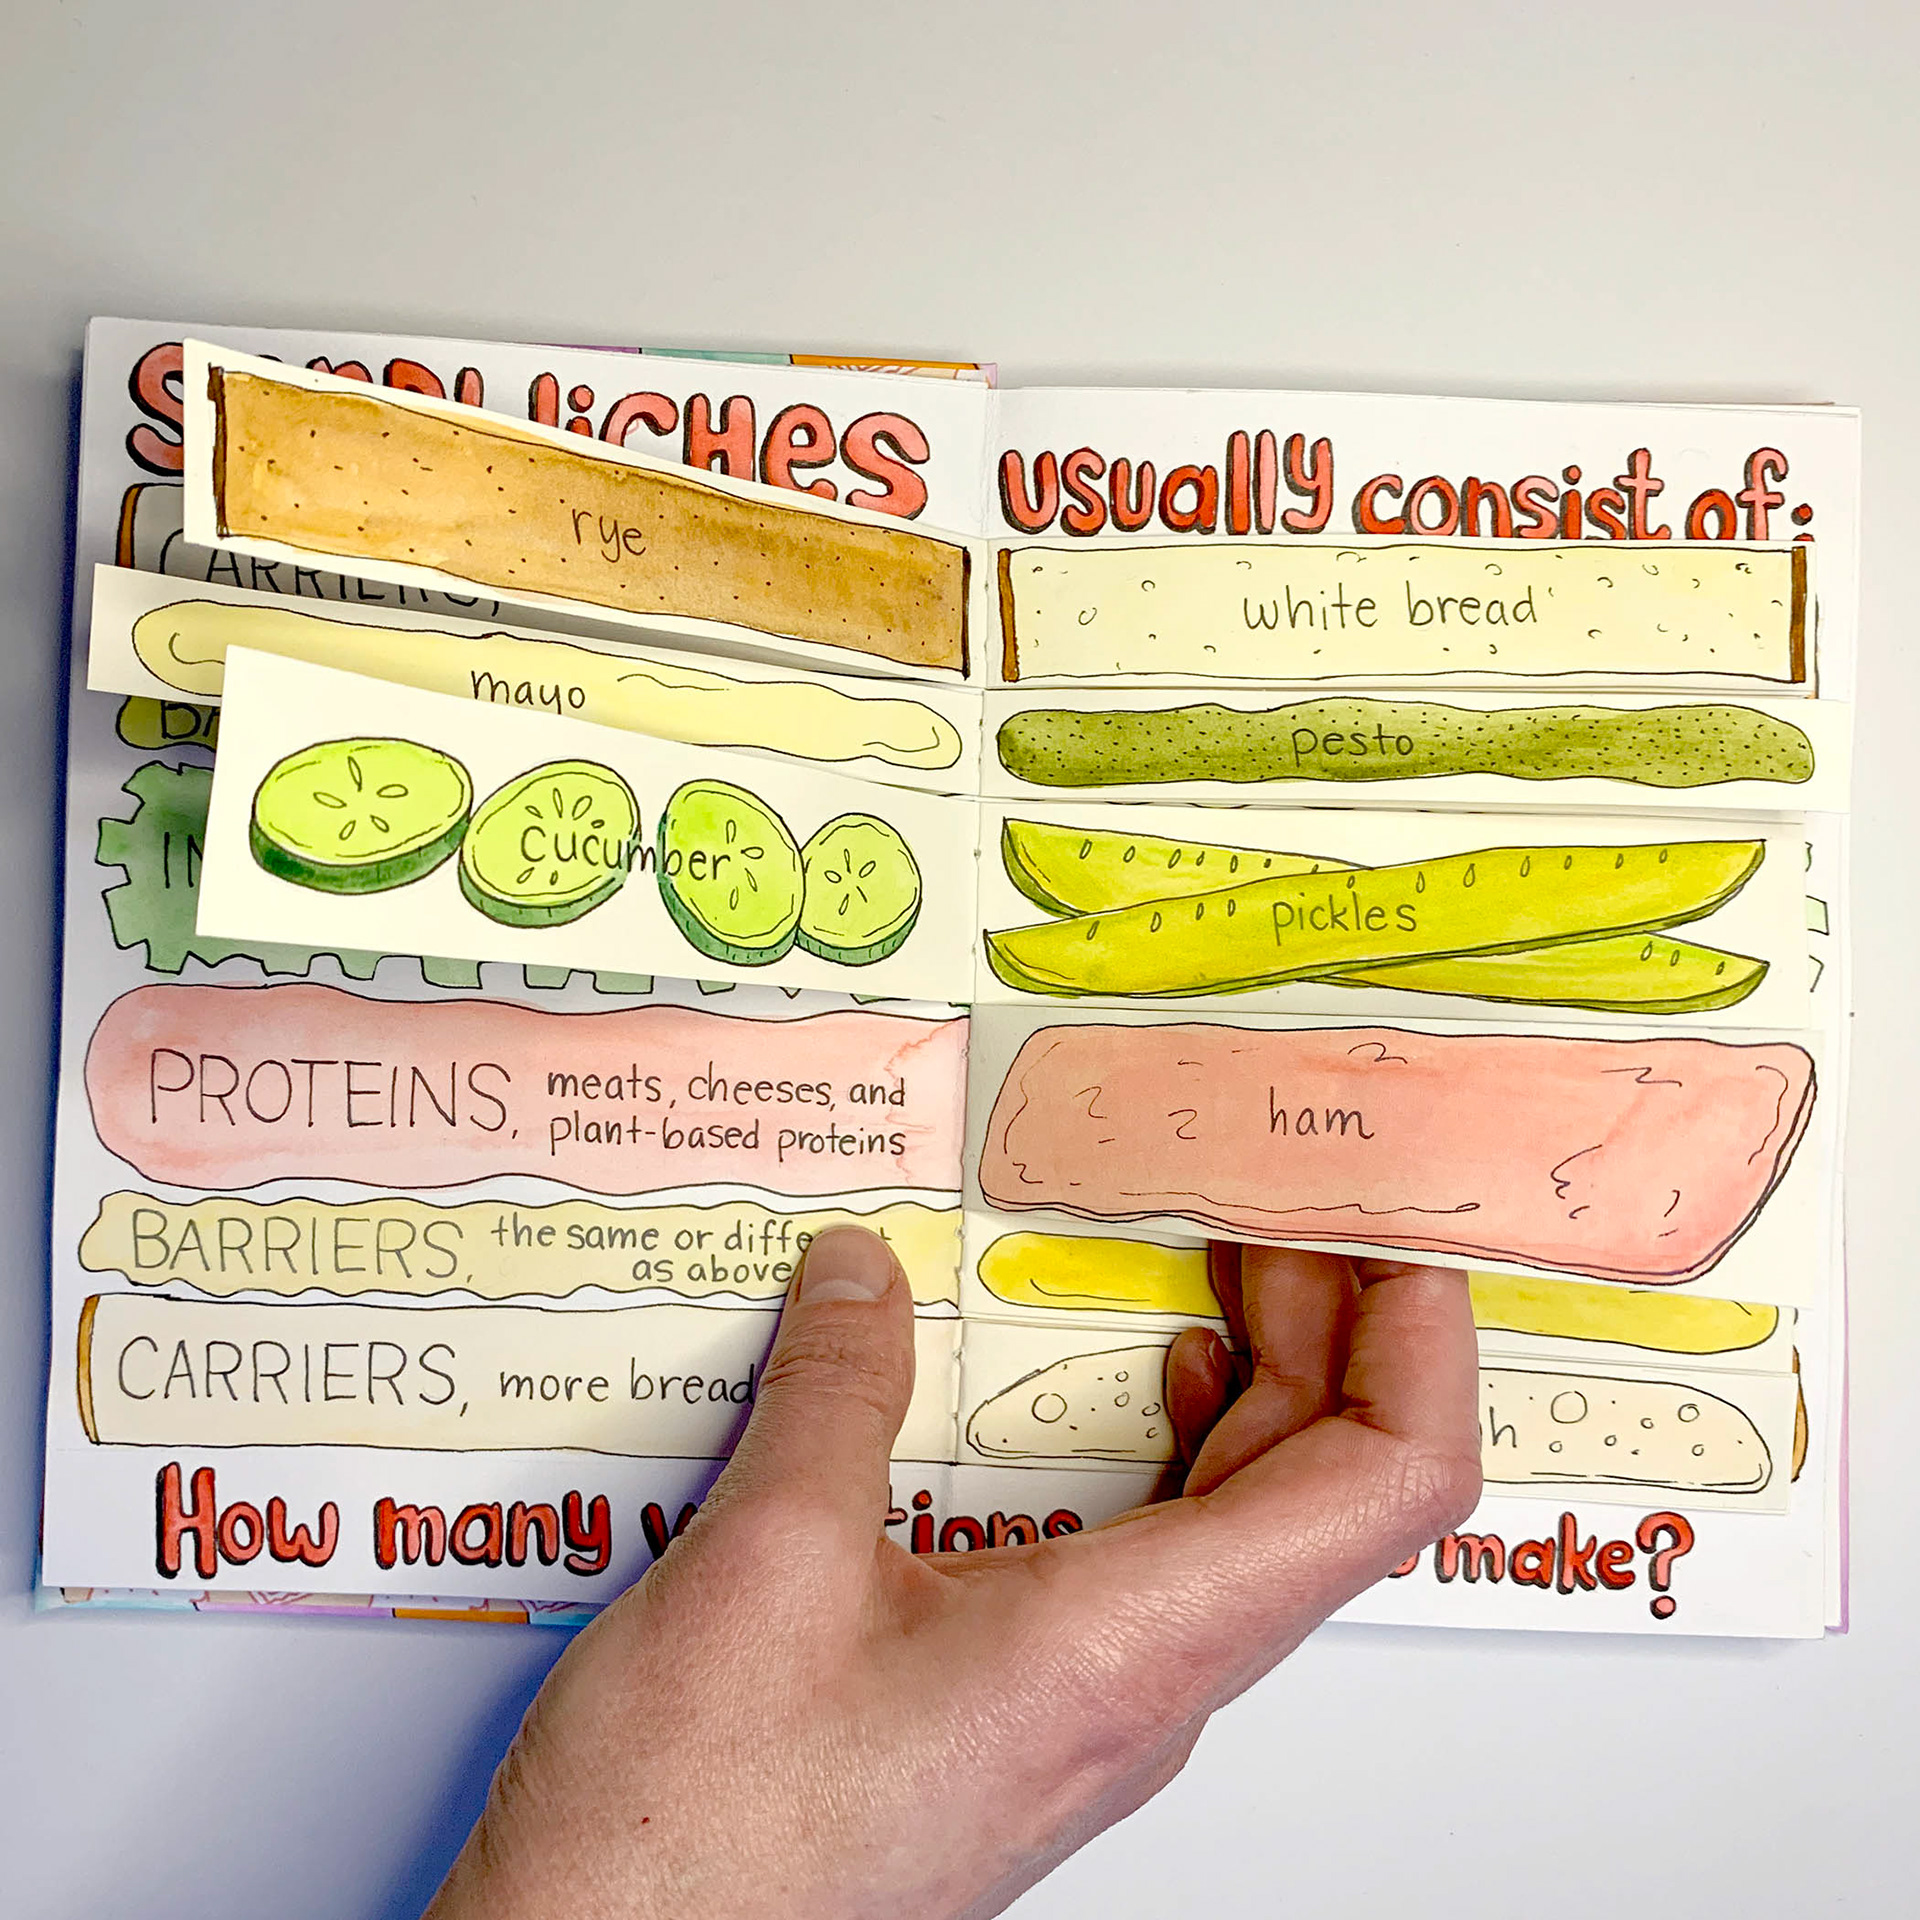 SANDWICHES usually consist of:
rye
white bread
CARRIERS,
mayo
pesto
cucumber
pickles
PROTEINS, meats, cheeses, and
plant-based proteins
ham
BARRIERS, the same or different
as above
CARRIERS, more bread
How many make?